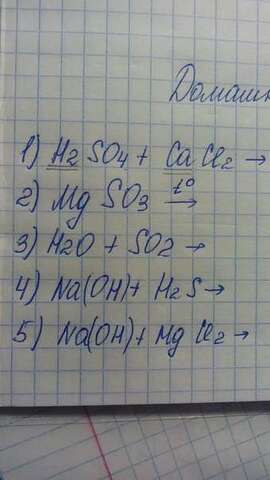 Домашн
1) H2 SO4 + Ca Cl2 →
2) Mg SO3 t° →
3) H2O + SO2 →
4) Na(OH) + H2S →
5) Na(OH) + Mg Cl2 →